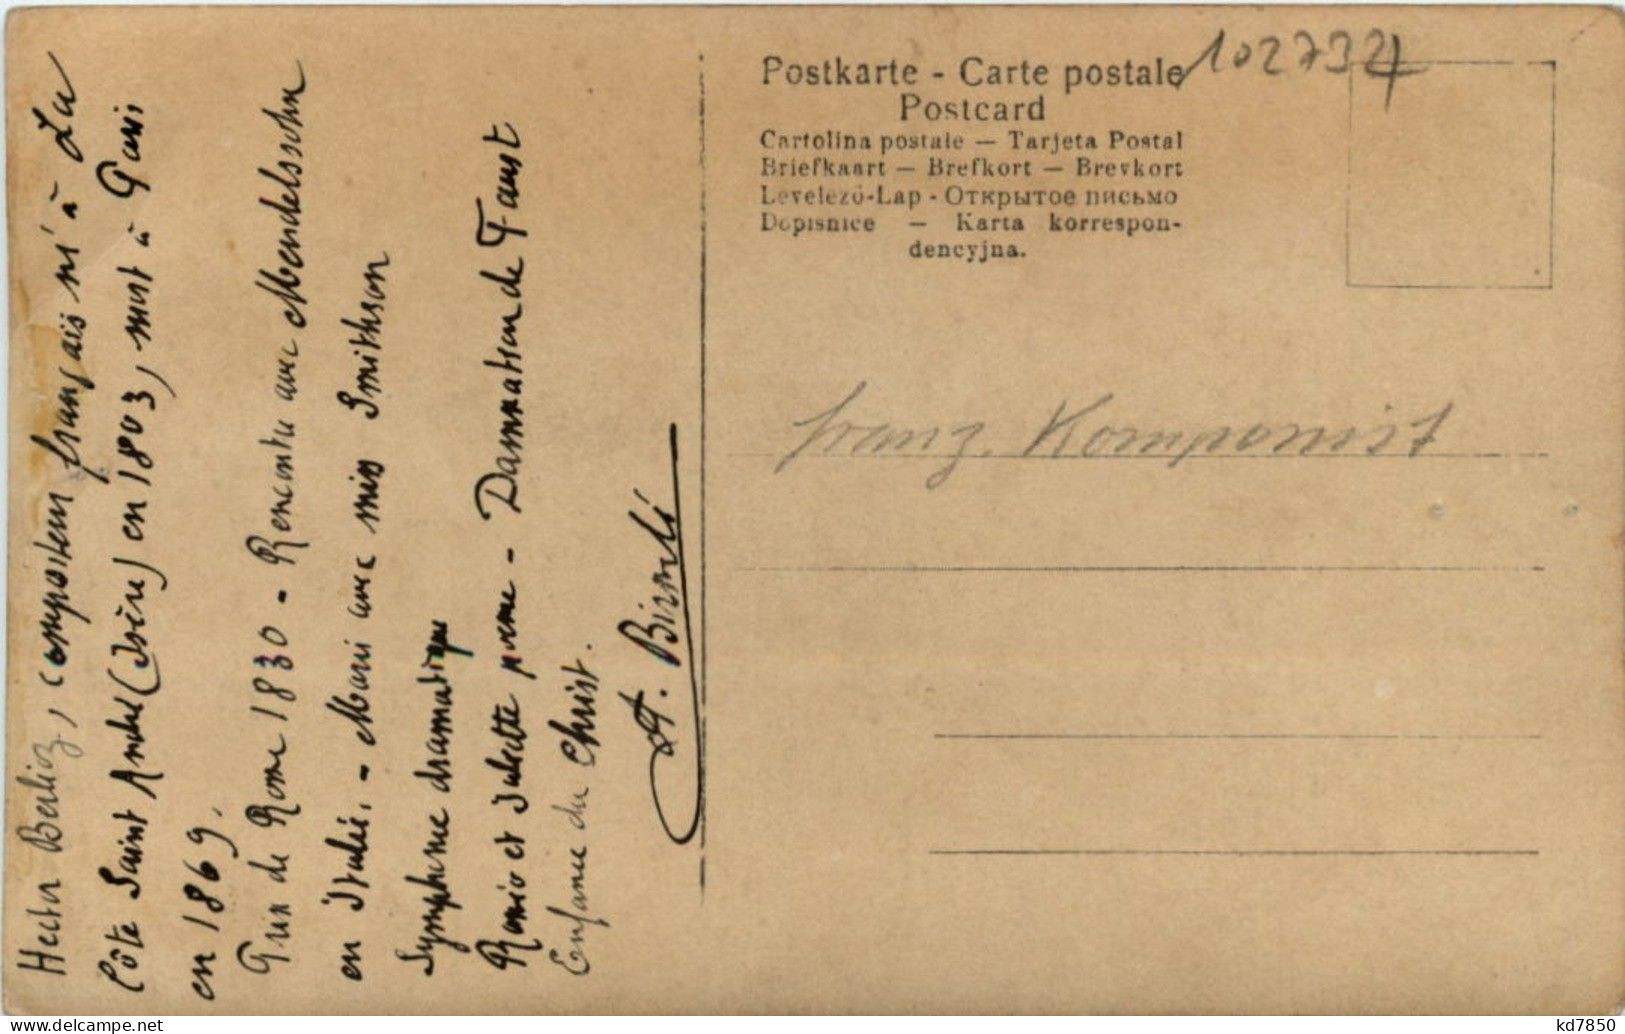 Hector Berlioz, compositeur français né à La
Côte Saint André (Isère) en 1803, mort à Paris
en 1869.
Prix de Rome 1830 - Rencontre avec Mendelssohn
en Italie. - Marié avec miss Smithson
Symphonie dramatique
Roméo et Juliette - Damnation de Faust
Enfance du Christ.
Postkarte - Carte postale
Postcard
Cartolina postale — Tarjeta Postal
Briefkaart — Brefkort — Brevkort
Levelező-Lap - Открытое письмо
Dopisnice — Karta korrespon-
dencyjna.
franz. Komponist
www.delcampe.net
kd7850